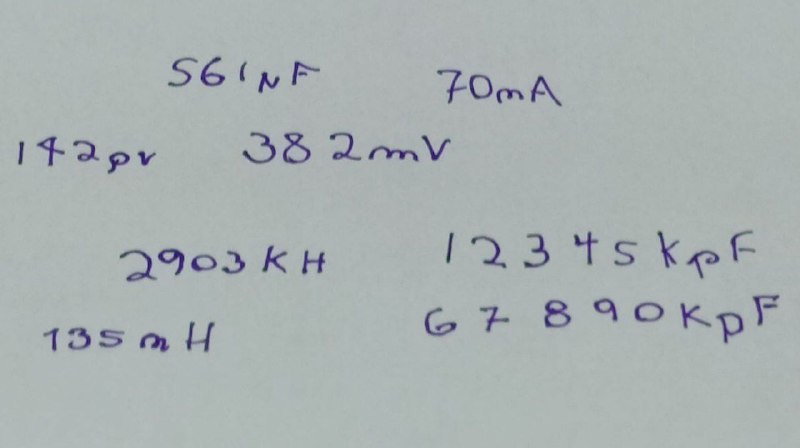 561NF 70mA
142pv 382mV
2903KH 12345KpF
135mH 67890KpF